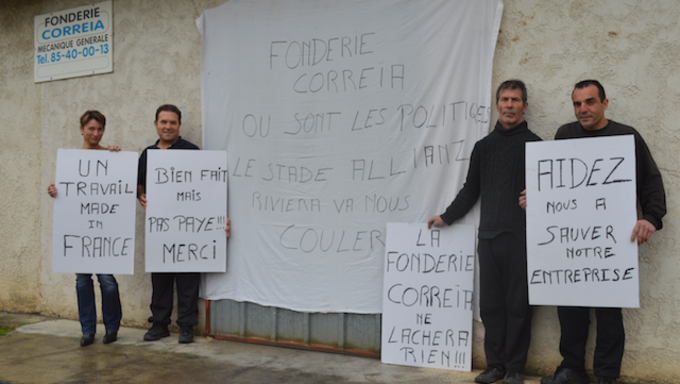 FONDERIE
CORREIA
MÉCANIQUE GÉNÉRALE
Tel. 85-40-00-13
UN
TRAVAIL
MADE
IN
FRANCE
BIEN FAIT
MAIS
PAS PAYE!!!
MERCI
FONDERIE
CORREIA
OU SONT LES POLITIQUES
LE STADE ALLIANZ
RIVIERA VA NOUS
COULER
LA
FONDERIE
CORREIA
NE
LACHERA
RIEN!!!
AIDEZ
NOUS A
SAUVER
NOTRE
ENTREPRISE